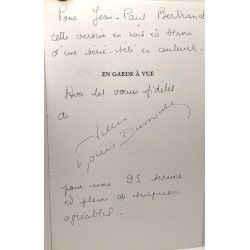 Pour Jean-Paul Bertrand
cette version en noir et blanc
d'une série télé en couleur.
EN GARDE À VUE
Avec les vœux fidèles
de
pour une 95 sereine
et plein de surprises
agréables.